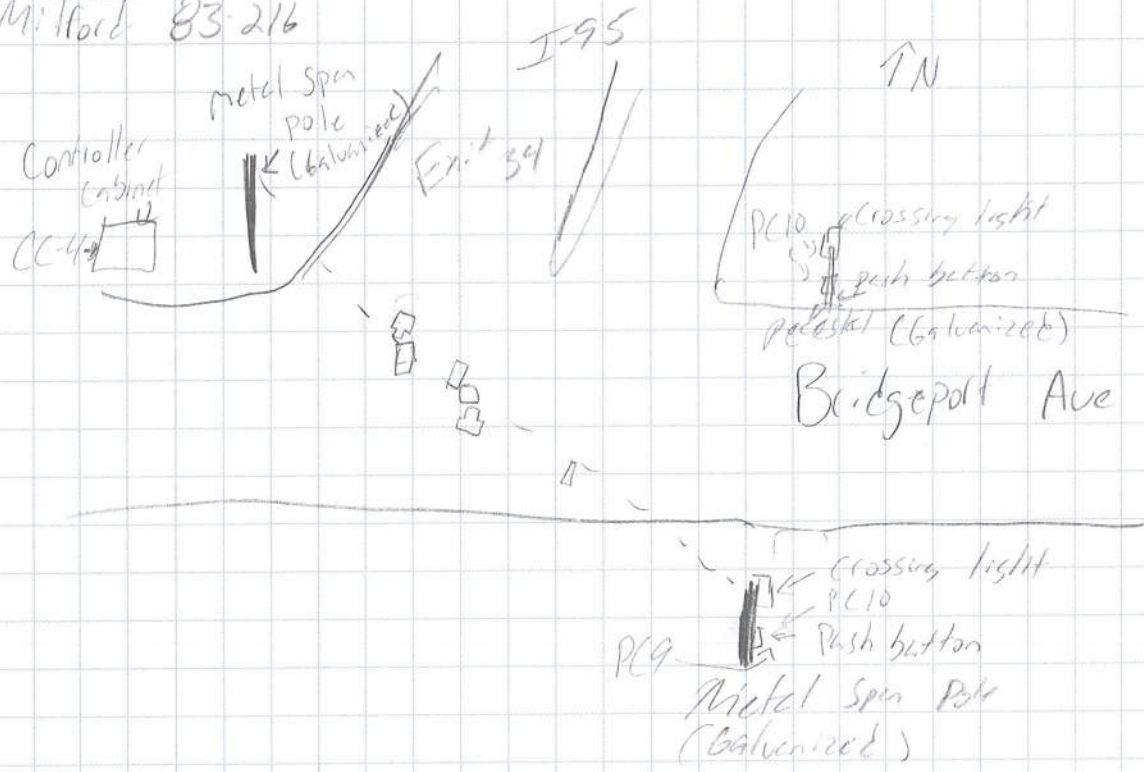 Milford 83-216
I-95
↑N
Metal Span
Pole
(Galvanized)
Controller
Cabinet
CC-4
Exit 34
PC10
Crossing light
push button
pedestal (Galvanized)
Bridgeport Ave
Crossing light
PC10
Push button
PC9
Metal Span Pole
(Galvanized)